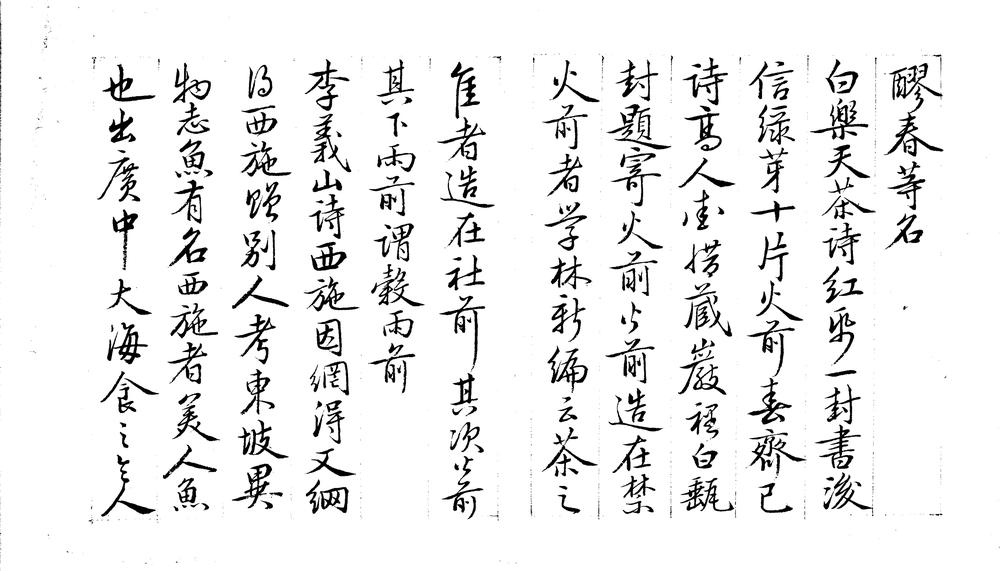 醪春等名
白樂天茶诗红纸一封書後
信绿芽十片火前春齊己
诗高人爱惜藏巖裡白甀
封題寄火前火前造在禁
火前者学林新编云茶之
佳者造在社前其次火前
其下雨前谓穀雨前
李義山诗西施因網得又網
得西施赠别人考東坡異
物志魚有名西施者美人魚
也出廣中大海食之令人